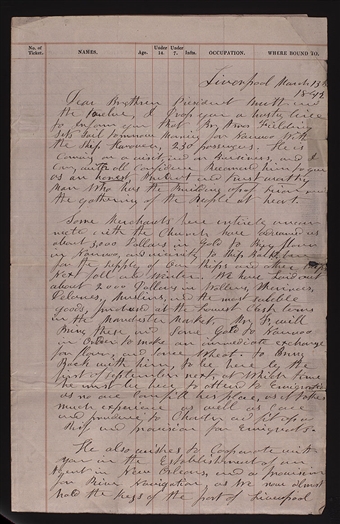 No. of Ticket. NAMES. Age. Under 14 Under 7 Infts. OCCUPATION. WHERE BOUND TO.
Liverpool March 13th
1842
Dear Brethren President Smith and
the Twelve, I drop you a hasty line
to inform you that Bro Amos Fielding
Sets Sail tomorrow Morning for Nauvoo With
the Ship Hanover, 230 passengers. He is
coming on a visit, and on Business, and I
can, with all confidence recommend him to you
as an honest, and trust worthy
man Who has the building up of Zion and
the gathering of the People at heart.
Some Merchants here entirely uncon-
nected with the Church have
about 3,000 Dollars in Gold to
in Nauvoo, and vicinity to Ship
for the supply of our Ships and other
Next fall and Winter. We have laid out
about 2,000 Dollars in Merinoes,
Muslins, and the most suitable
goods, purchased at the lowest Cash terms
in the Manchester Market. Bro F. will
Bring these and some Gold to Nauvoo
in Order to make an immediate exchange
for flour, and some Wheat. to Bring
Back with him, to be here by the
first of September next at Which time
he must be here to attend to Emigration
as no one can fill his place, as it takes
much experience as well as care
and prudence to Charter and fit up a
Ship and provision for Emigrants.
He also wishes to Cooperate with
you in the Establishment of an
Agent in New Orleans, and a provision
for River Navigation, as We now almost
hold the keys of the port of Liverpool